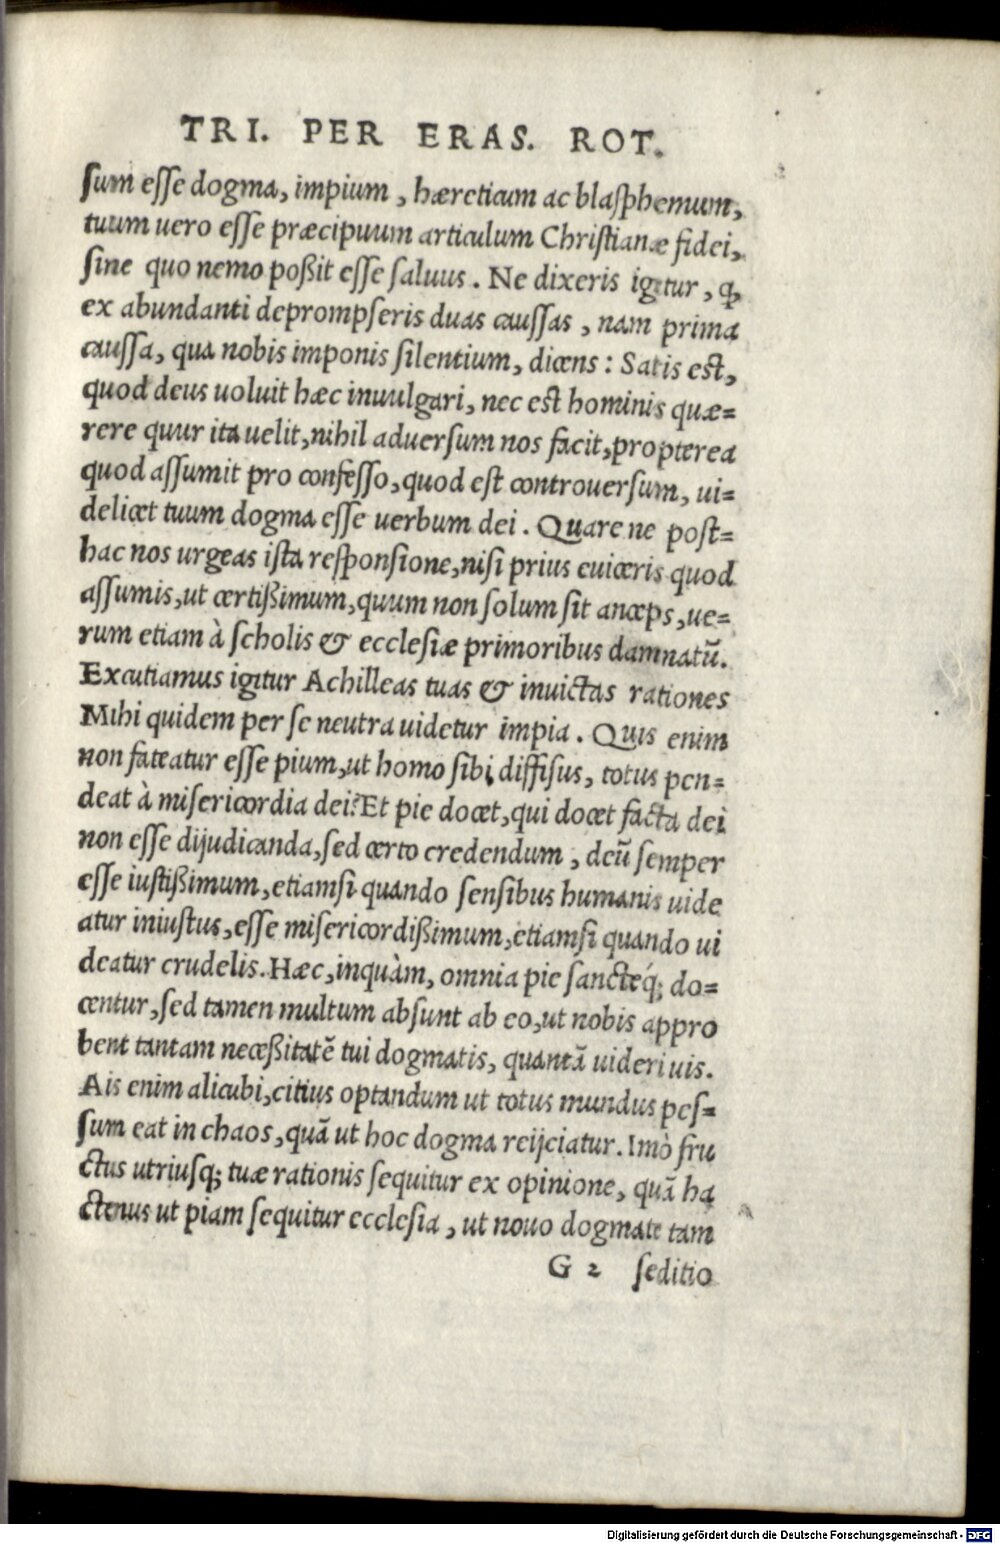 TRI. PER ERAS. ROT.
sum esse dogma, impium, hæreticum ac blasphemum,
tuum uero esse præcipuum articulum Christianæ fidei,
sine quo nemo poßit esse saluus. Ne dixeris igitur, ꝙ
ex abundanti deprompseris duas caussas, nam prima
caussa, qua nobis imponis silentium, dicens: Satis est,
quod deus uoluit hæc inuulgari, nec est hominis quæ=
rere quur ita uelit, nihil aduersum nos facit, propterea
quod assumit pro confesso, quod est controuersum, ui=
delicet tuum dogma esse uerbum dei. Quare ne post=
hac nos urgeas ista responsione, nisi prius euiceris quod
assumis, ut certißimum, quum non solum sit anceps, ue=
rum etiam à scholis & ecclesiæ primoribus damnatū.
Excutiamus igitur Achilleas tuas & inuictas rationes
Mihi quidem per se neutra uidetur impia. Quis enim
non fateatur esse pium, ut homo sibi diffisus, totus pen=
deat à misericordia dei? Et pie docet, qui docet facta dei
non esse dijudicanda, sed certo credendum, deū semper
esse iustißimum, etiamsi quando sensibus humanis uide
atur iniustus, esse misericordißimum, etiamsi quando ui
deatur crudelis. Hæc, inquàm, omnia pie sancteq́; do=
centur, sed tamen multum absunt ab eo, ut nobis appro
bent tantam neceßitatē tui dogmatis, quantā uideri uis.
Ais enim alicubi, citius optandum ut totus mundus pes=
sum eat in chaos, quā ut hoc dogma reijciatur. Imò fru
ctus utriusq; tuæ rationis sequitur ex opinione, quā ha
ctenus ut piam sequitur ecclesia, ut nouo dogmate tam
G 2 seditio
Digitalisierung gefördert durch die Deutsche Forschungsgemeinschaft - DFG